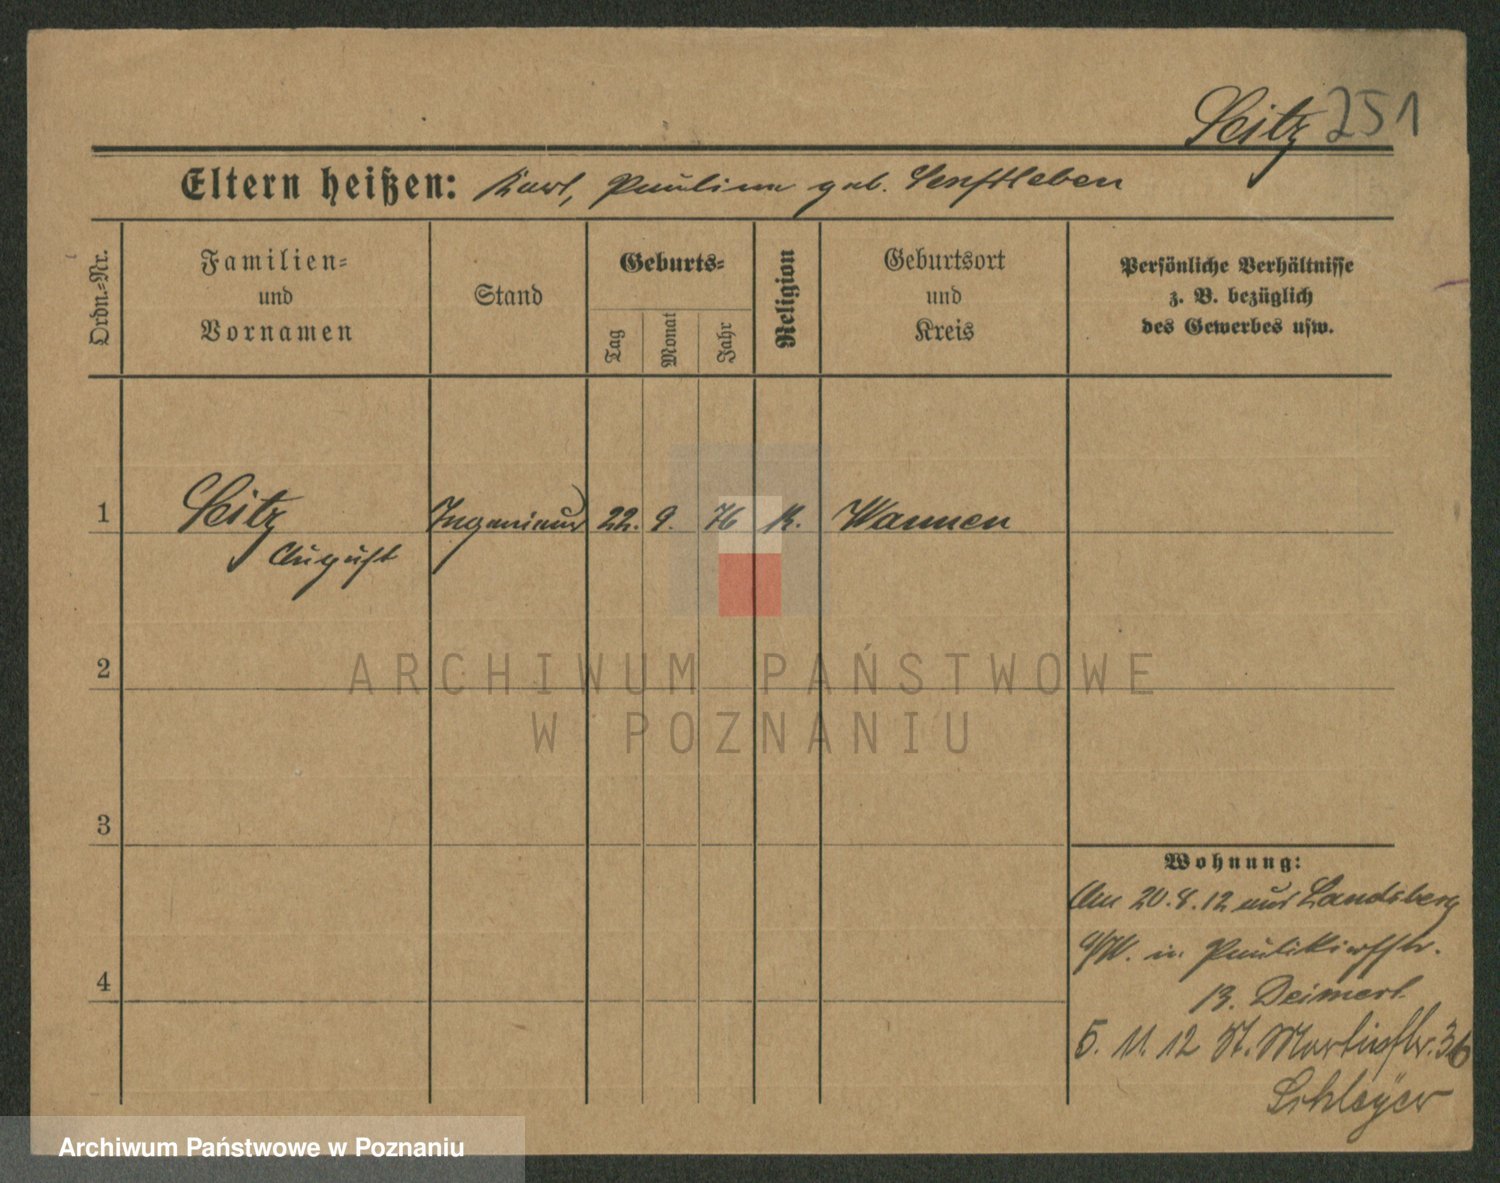 Seitz 251
Eltern heißen: Karl, Pauline geb. Senftleben
Ordn.-Nr.
Familien- und Vornamen
Stand
Geburts-
Tag
Monat
Jahr
Religion
Geburtsort und Kreis
Persönliche Verhältnisse z. B. bezüglich des Gewerbes usw.
1
Seitz
Ingenieur 22. 9. 76 K. Wannen
August
2
ARCHIWUM PAŃSTWOWE
W POZNANIU
3
Wohnung:
Am 20.8.12 aus Landsberg
a/W. n. Paulikirchstr.
4
5. 11. 12 St. Martinstr. 36
Schleyer
Archiwum Państwowe w Poznaniu